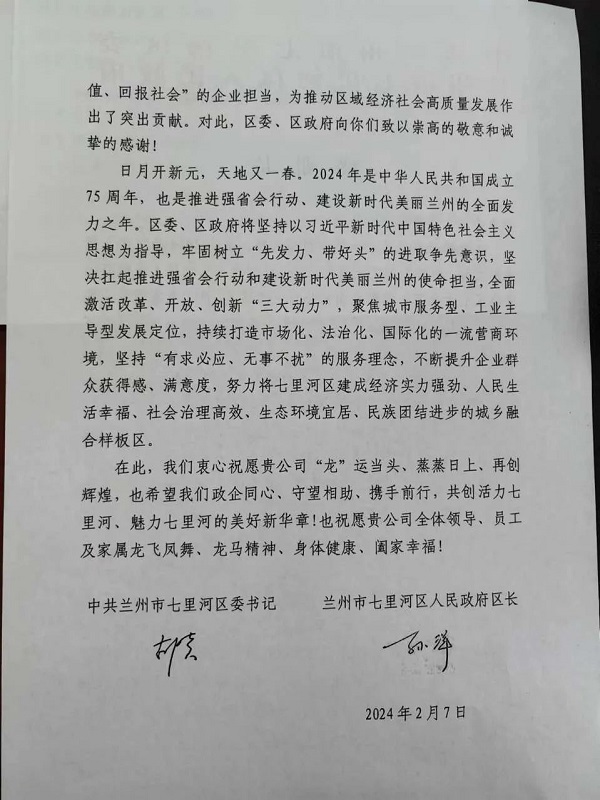 值、回报社会”的企业担当，为推动区域经济社会高质量发展作
出了突出贡献。对此，区委、区政府向你们致以崇高的敬意和诚
挚的感谢！
日月开新元，天地又一春。2024年是中华人民共和国成立
75周年，也是推进强省会行动、建设新时代美丽兰州的全面发
力之年。区委、区政府将坚持以习近平新时代中国特色社会主义
思想为指导，牢固树立“先发力、带好头”的进取争先意识，坚
决扛起推进强省会行动和建设新时代美丽兰州的使命担当，全面
激活改革、开放、创新“三大动力”，聚焦城市服务型、工业主
导型发展定位，持续打造市场化、法治化、国际化的一流营商环
境，坚持“有求必应、无事不扰”的服务理念，不断提升企业群
众获得感、满意度，努力将七里河区建成经济实力强劲、人民生
活幸福、社会治理高效、生态环境宜居、民族团结进步的城乡融
合样板区。
在此，我们衷心祝愿贵公司“龙”运当头、蒸蒸日上、再创
辉煌，也希望我们政企同心、守望相助、携手前行，共创活力七
里河、魅力七里河的美好新华章！也祝愿贵公司全体领导、员工
及家属龙飞凤舞、龙马精神、身体健康、阖家幸福！
中共兰州市七里河区委书记 兰州市七里河区人民政府区长
孙洋
2024年2月7日